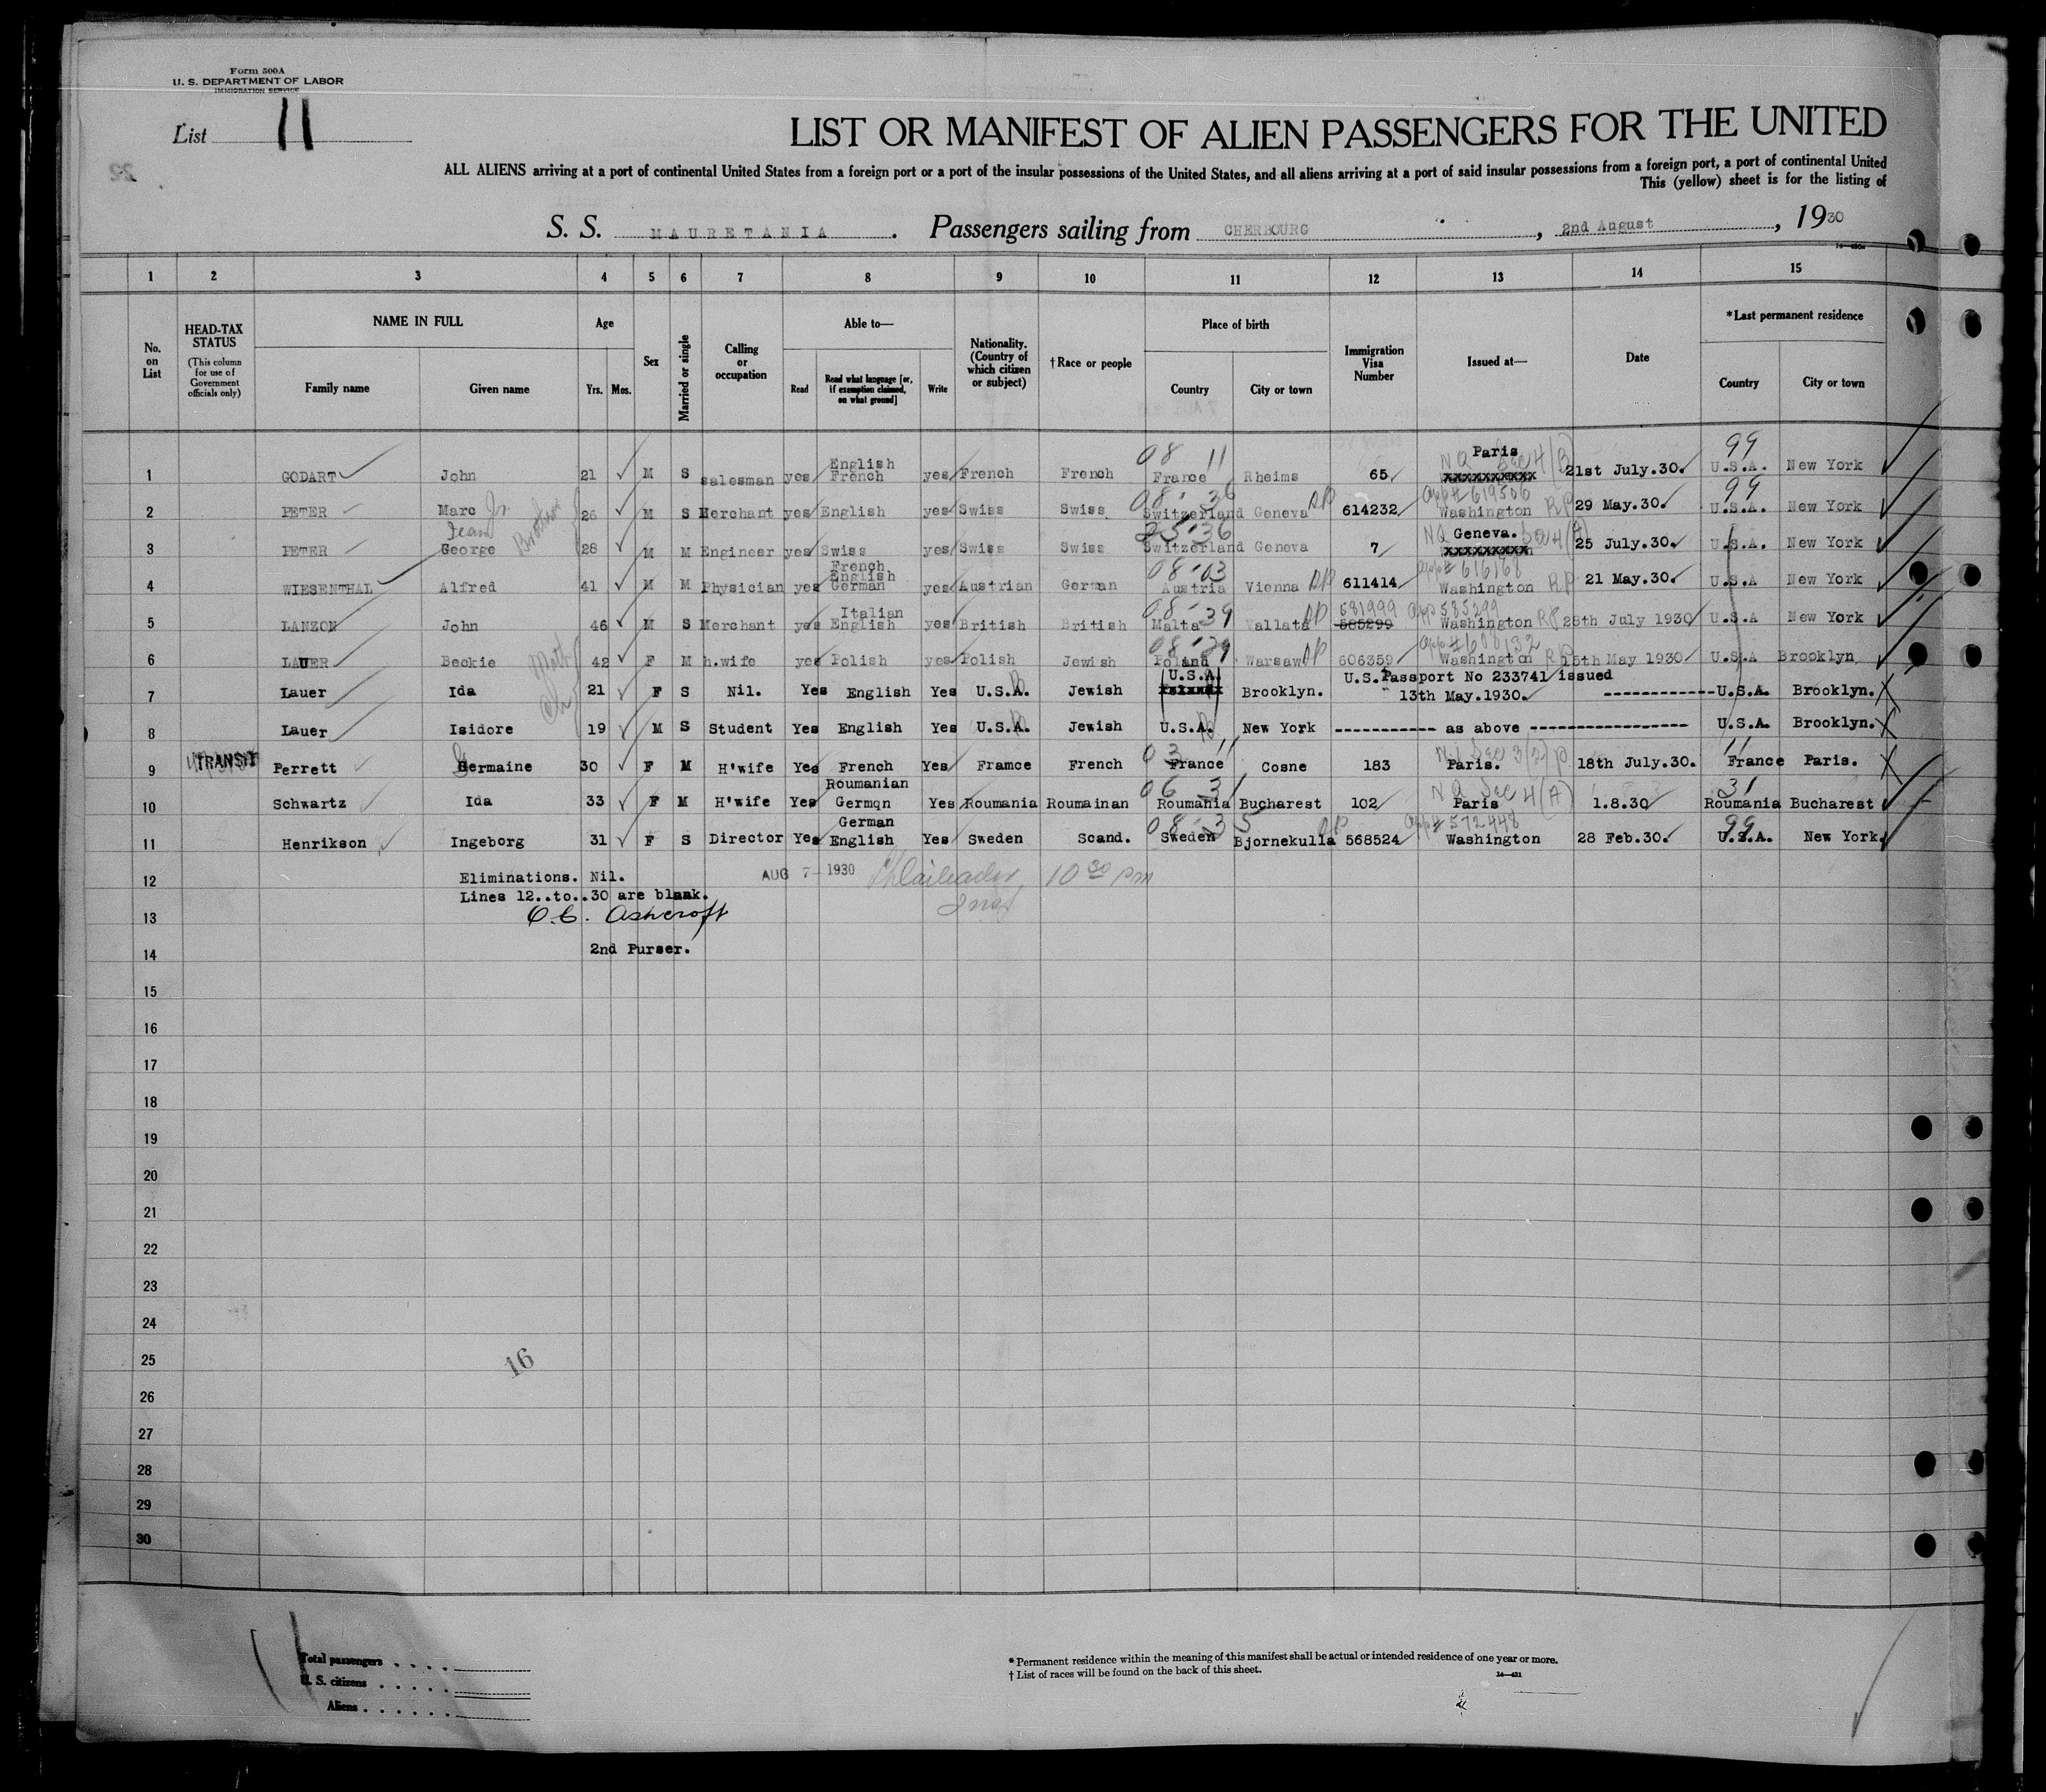 Form 500A
U. S. DEPARTMENT OF LABOR
IMMIGRATION SERVICE
List 11
LIST OR MANIFEST OF ALIEN PASSENGERS FOR THE UNITED
ALL ALIENS arriving at a port of continental United States from a foreign port or a port of the insular possessions of the United States, and all aliens arriving at a port of said insular possessions from a foreign port, a port of continental United
This (yellow) sheet is for the listing of
S. S. MAURETANIA . Passengers sailing from CHERBOURG , 2nd August , 1930
1 2 3 4 5 6 7 8 9 10 11 12 13 14 15
No. on List
HEAD-TAX STATUS (This column for use of Government officials only)
NAME IN FULL Family name Given name
Age Yrs. Mos.
Sex
Married or single
Calling or occupation
Able to— Read Read what language [or, if exemption claimed, on what ground] Write
Nationality. (Country of which citizen or subject)
† Race or people
Place of birth Country City or town
Immigration Visa Number
Issued at—
Date
*Last permanent residence Country City or town
1 GODART John 21 M S salesman yes English French yes French French 08 11 France Rheims 65 NQ Sec 4(B) Paris 21st July.30. 99 U.S.A. New York
2 PETER Marc Jr. 26 M S Merchant yes English yes Swiss Swiss 08 36 Switzerland Geneva RP 614232 app# 619506 Washington RP 29 May.30. 99 U.S.A New York
3 PETER Jean George Brothers 28 M M Engineer yes Swiss yes Swiss Swiss 36 Switzerland Geneva 7 NQ Geneva. 25 July.30. U.S.A. New York
4 WIESENTHAL Alfred 41 M M Physician yes French English German yes Austrian German 08 03 Austria Vienna RP 611414 app# 616168 Washington RP 21 May.30. U.S.A New York
5 LANZON John 46 M S Merchant yes Italian English yes British British 08 39 Malta Vallata RP 581999 585299 app 585299 Washington RP 28th July 1930 U.S.A New York
6 LAUER Beckie 42 F M h.wife yes Polish yes Polish Jewish 08 29 Poland Warsaw RP 606359 app# 608132 Washington RP 15th May 1930 U.S.A Brooklyn
7 Lauer Ida 21 F S Nil. Yes English Yes U.S.A. Jewish U.S.A. Brooklyn. U.S. Passport No 233741 issued 13th May.1930. ------------ U.S.A. Brooklyn.
8 Lauer Isidore 19 M S Student Yes English Yes U.S.A. Jewish U.S.A. New York ----------- as above ----------------- U.S.A. Brooklyn.
9 TRANSIT Perrett Germaine 30 F M H'wife Yes French Yes Framce French 03 11 France Cosne 183 Sec 3(2) Paris. 18th July.30. 11 France Paris.
10 Schwartz Ida 33 F M H'wife Yes Roumanian Germqn Yes Roumania Roumainan 06 31 Roumania Bucharest 102 NQ Sec 4(A) Paris 1.8.30 31 Roumania Bucharest
11 Henrikson Ingeborg 31 F S Director Yes German English Yes Sweden Scand. 08 35 Sweden Bjornekulla RP 568524 app# 572448 Washington 28 Feb.30. 99 U.S.A. New York.
12 Eliminations. Nil. AUG 7-1930 10 30 pm
Lines 12..to..30 are blank.
13 Ashcroft
14 2nd Purser.
15
16
17
18
19
20
21
22
23
24
25
16
26
27
28
29
30
Total passengers . . . .
U. S. citizens . . . . .
Aliens . . . . . .
* Permanent residence within the meaning of this manifest shall be actual or intended residence of one year or more.
† List of races will be found on the back of this sheet.